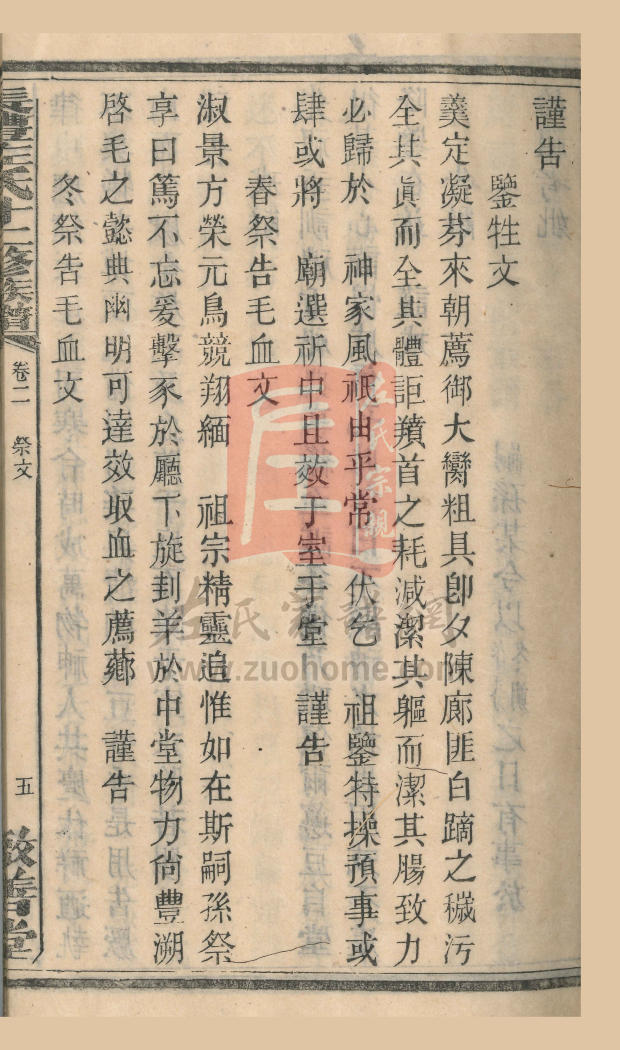 謹告
鑒牲文
羹定凝芬來朝薦御大臠粗具卽夕陳廊匪白蹢之穢污
全其眞而全其體詎羵首之耗減潔其軀而潔其腸致力
必歸於 神家風祇由乎常 伏乞 祖鑒特操預事或
肆或將 廟選祈中且效于室于堂 謹告
春祭告毛血文
淑景方榮元鳥競翔緬 祖宗精靈追惟如在斯嗣孫祭
享曰篤不忘爰擊豕於廳下旋刲羊於中堂物力尙豐溯
啓毛之懿典幽明可達效取血之薦薌 謹告
冬祭告毛血文
長豐左氏十二修族譜 卷二 祭文 五 敬善堂
左氏宗親
左氏家譜網
www.zuohome.com